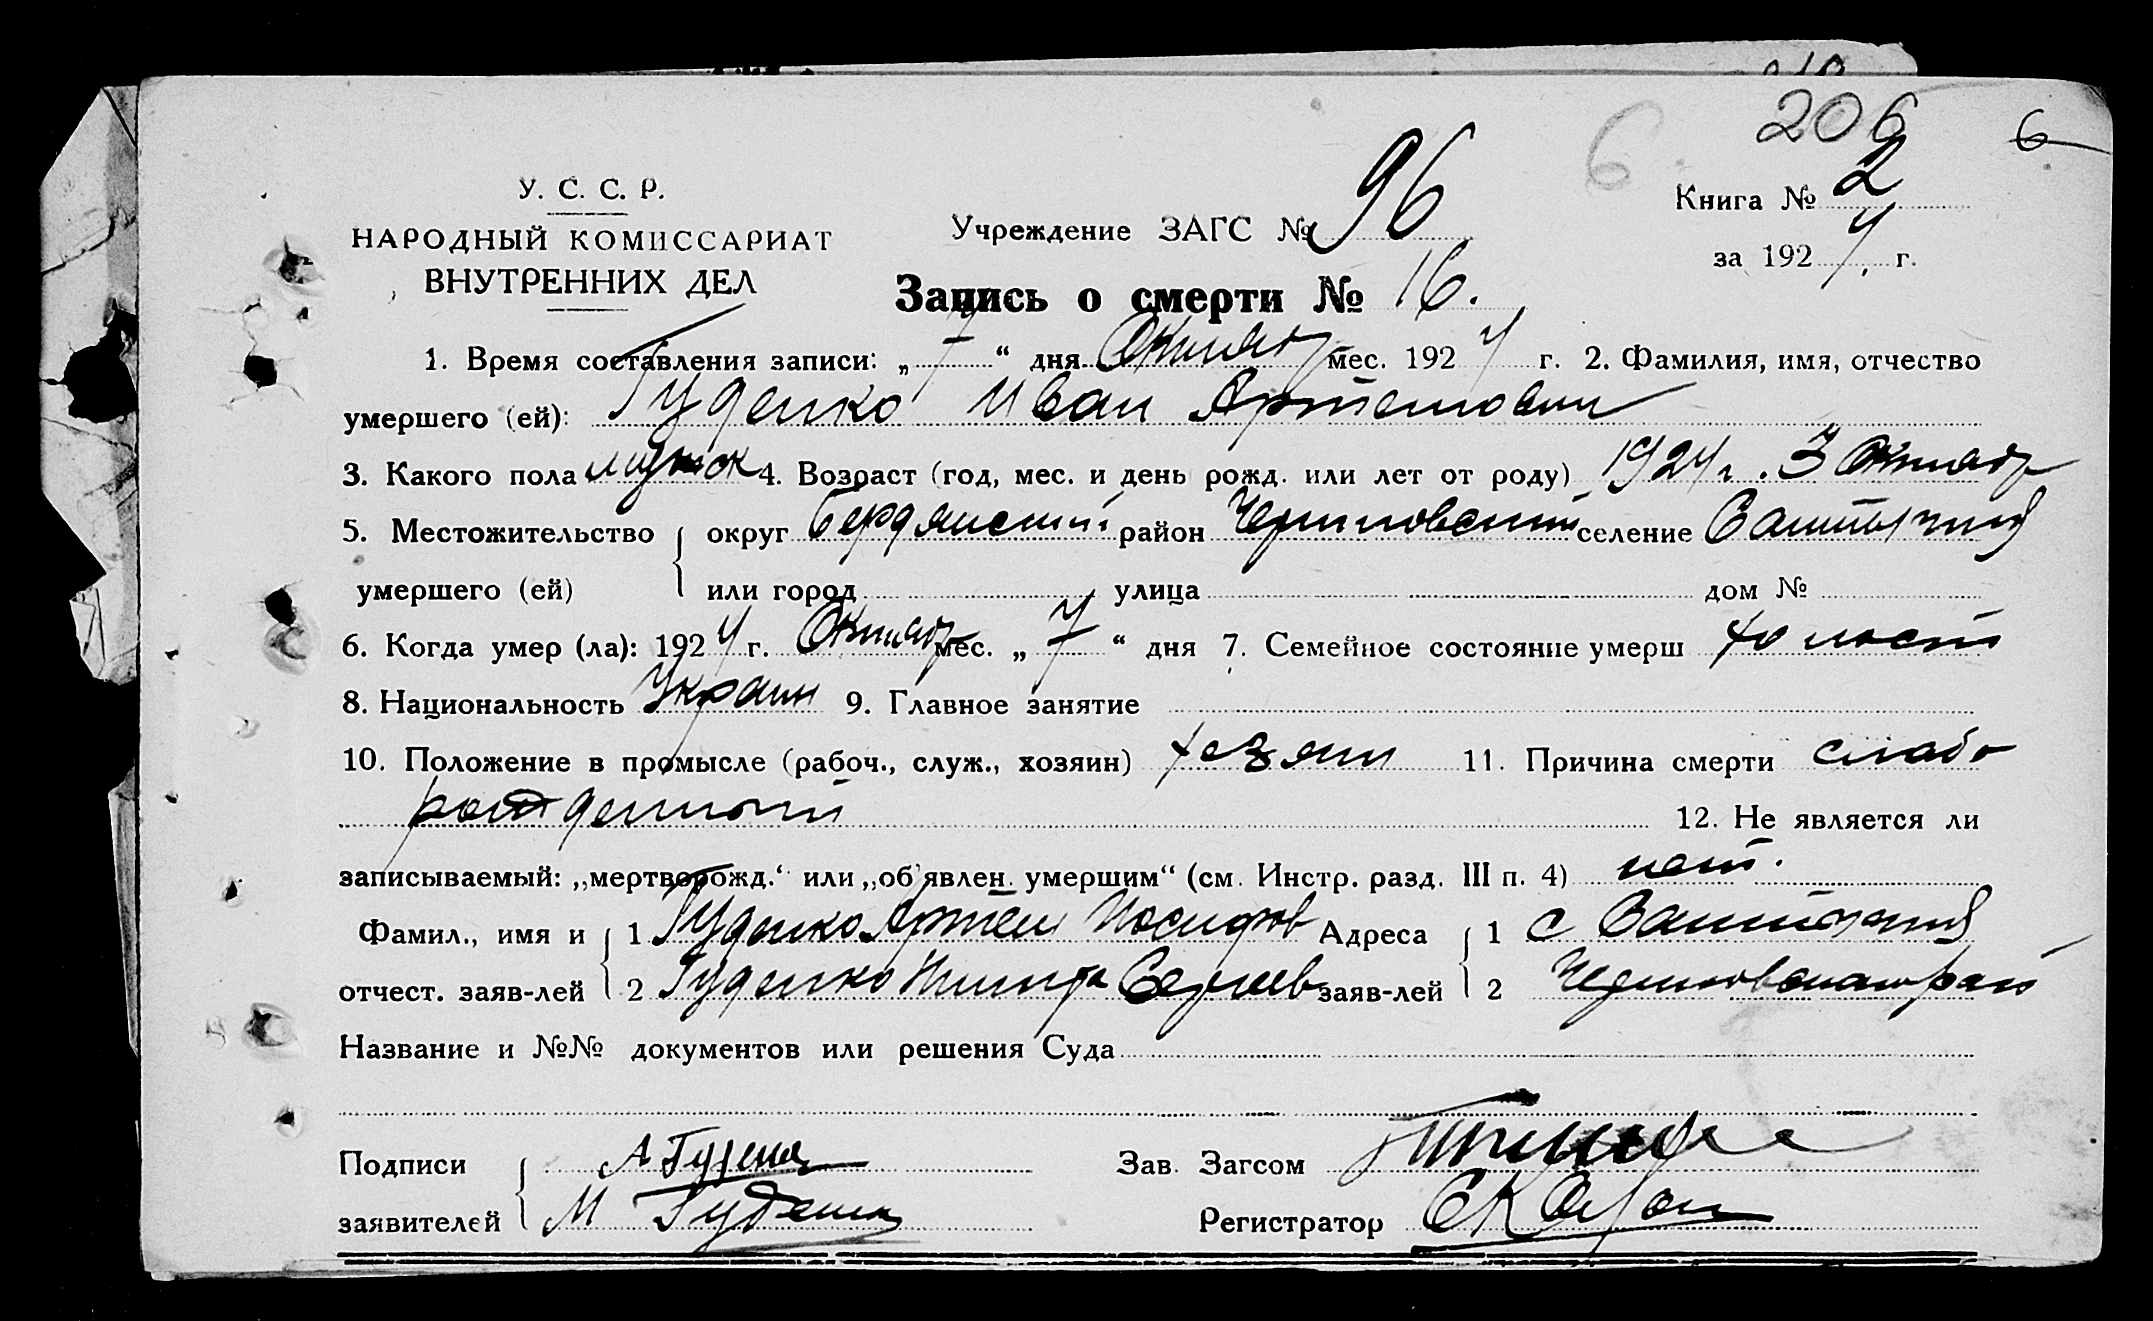 206
6
6
У. С. С. Р.
НАРОДНЫЙ КОМИССАРИАТ
ВНУТРЕННИХ ДЕЛ
Учреждение ЗАГС № 96
Книга № 2
за 1924 г.
Запись о смерти № 16.
1. Время составления записи: „ 7 “ дня Октяб мес. 1924 г. 2. Фамилия, имя, отчество
умершего (ей): Гуденко Иван Артемович
3. Какого пола мужск 4. Возраст (год, мес. и день рожд. или лет от роду) 1924 г. 3 Октяб
5. Местожительство округ Бердянский район Черниговский селение Салтычия
умершего (ей) или город улица дом №
6. Когда умер (ла): 1924 г. Октяб мес. „ 7 “ дня 7. Семейное состояние умерш холост
8. Национальность Украин 9. Главное занятие
10. Положение в промысле (рабоч., служ., хозяин) хозяин 11. Причина смерти слабо
рожденный 12. Не является ли
записываемый: „мертворожд.“ или „об'явлен. умершим“ (см. Инстр. разд. III п. 4) нет.
Фамил., имя и 1 Гуденко Артем Иосифов Адреса 1 с Салтычия
отчест. заяв-лей 2 Гуденко Сергеев заяв-лей 2
Название и №№ документов или решения Суда
Подписи А Гуденко Зав. Загсом
заявителей М Гуденко Регистратор